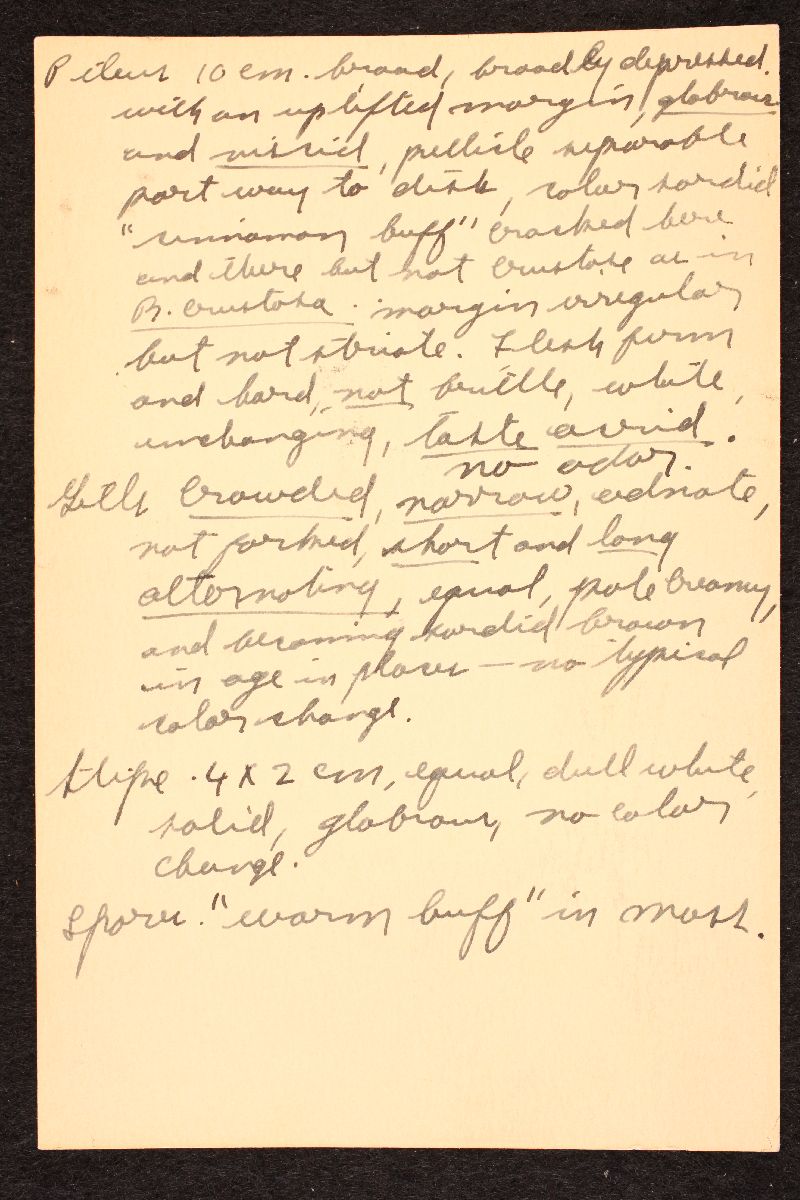 Pileus 10 cm. broad, broadly depressed
with an uplifted margin, glabrous
and viscid, pellicle separable
part way to disk, color sordid
"cinnamon buff" cracked here
and there but not crustose as in
R. crustosa. margin irregular
but not striate. Flesh firm
and hard, not brittle, white,
unchanging, taste acrid.
no odor.
Gills crowded, narrow, adnate,
not forked, short and long
alternating, equal, pale creamy,
and becoming sordid brown
in age in places — no typical
color change.
Stipe 4 x 2 cm, equal, dull white,
solid, glabrous, no color
change.
Spores "warm buff" in mass.